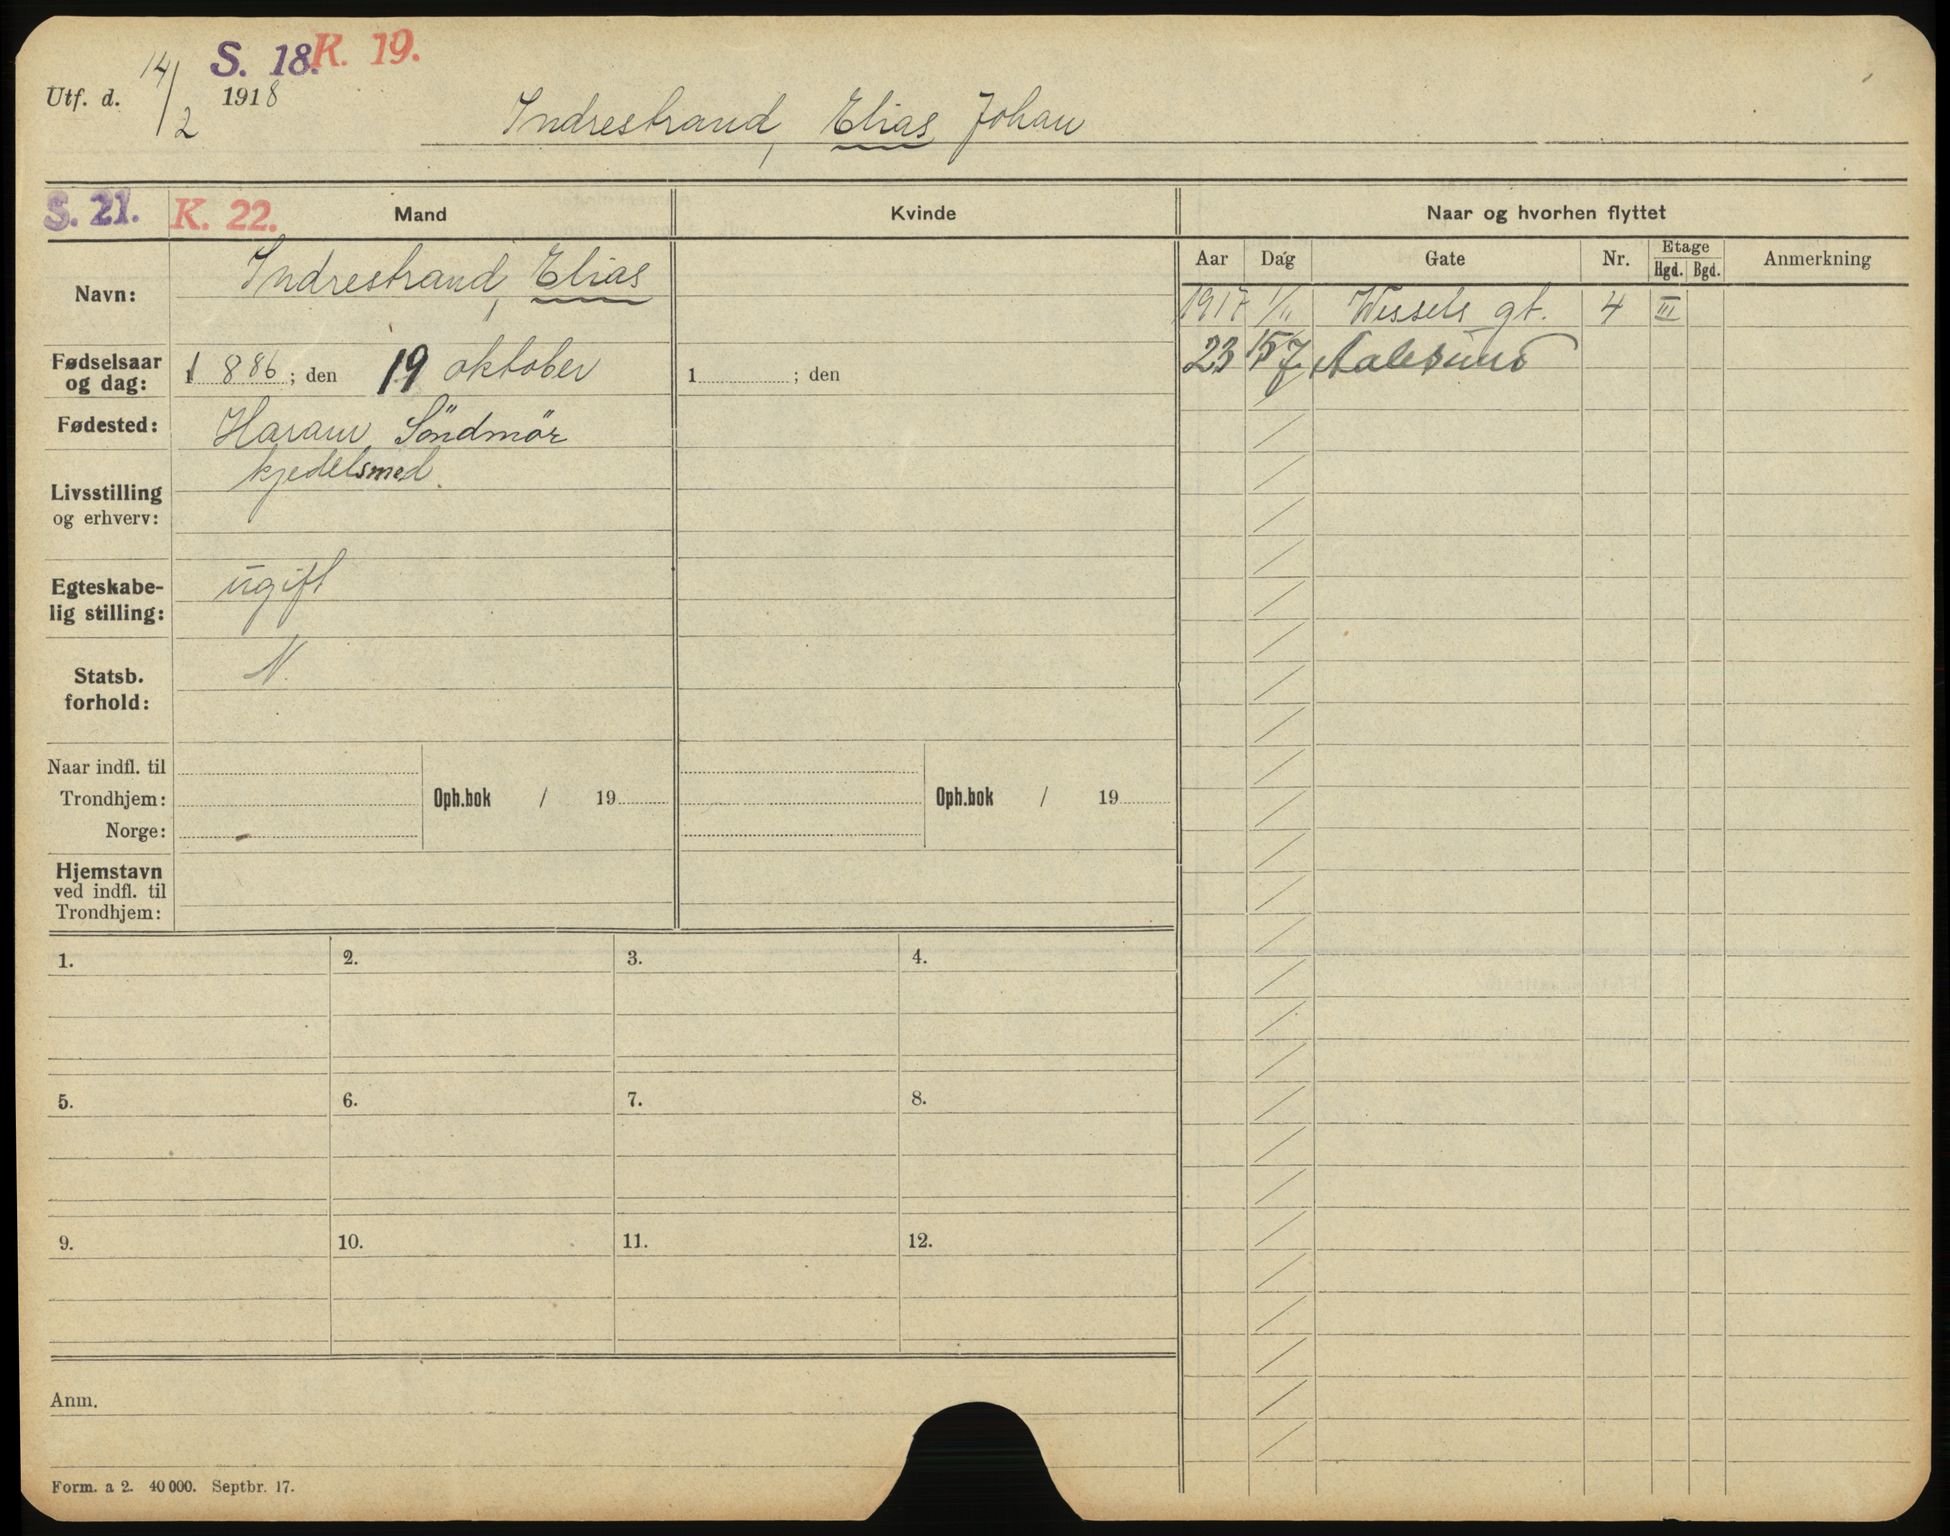 S. 18. K. 19.
Utf. d. 14/2 1918
Indrestrand, Elias Johan
S. 21. K. 22. Mand Kvinde Naar og hvorhen flyttet
Aar Dag Gate Nr. Etage Hgd. Bgd. Anmerkning
Navn: Indrestrand, Elias
1917 1/11 Wessels gt. 4 III
23 15/7 Aalesund
Fødselsaar og dag: 1 886 ; den 19 oktober 1 ; den
Fødested: Haram, Söndmör
kjedelsmed.
Livsstilling
og erhverv:
Egteskabe-
lig stilling: ugift
Statsb.
forhold: N.
Naar indfl. til
Trondhjem: Oph.bok / 19 Oph.bok / 19
Norge:
Hjemstavn
ved indfl. til
Trondhjem:
1. 2. 3. 4.
5. 6. 7. 8.
9. 10. 11. 12.
Anm.
Form. a 2. 40 000. Septbr. 17.